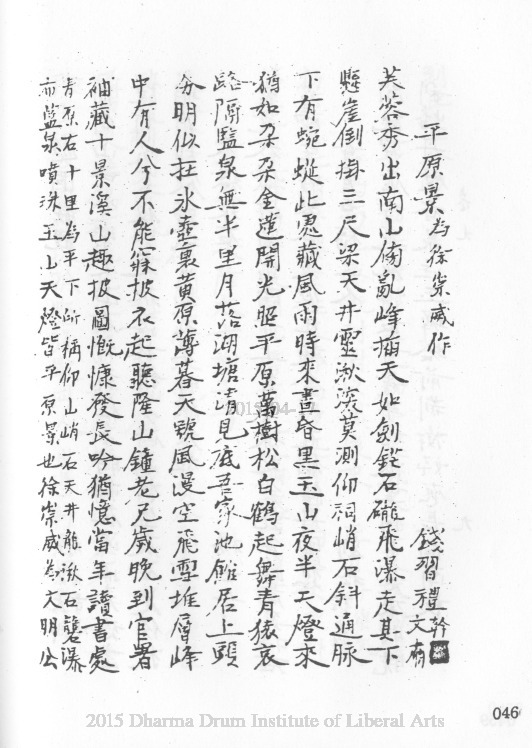 平原景為徐崇威作
錢習禮 幹文有
芙蓉秀出南山傍亂峰插天如劍鋩石礲飛瀑走其下
懸崖倒掛三尺梁天井靈湫深莫測仰祠峭石斜通脉
下有蜿蜒此處藏風雨時來晝昏黑玉山夜半天燈來
猶如朵朵金蓮開光照平原萬樹松白鶴起舞青猿哀
路隔鹽泉無半里月落湖塘清見底吾家池館居上頭
分明似在氷壺裏黃原薄暮天號風漫空飛雪堆層峰
中有人兮不能寐披衣起聽隆山鐘老兄歲晚到官署
袖藏十景溪山趣披圖慨慷發長吟猶憶當年讀書處
青原右十里為平下所稱仰山峭石天井龍湫石礱瀑
布藍泉噴洙玉山天燈皆平原景也徐崇威為文明公
2015
046
2015 Dharma Drum Institute of Liberal Arts